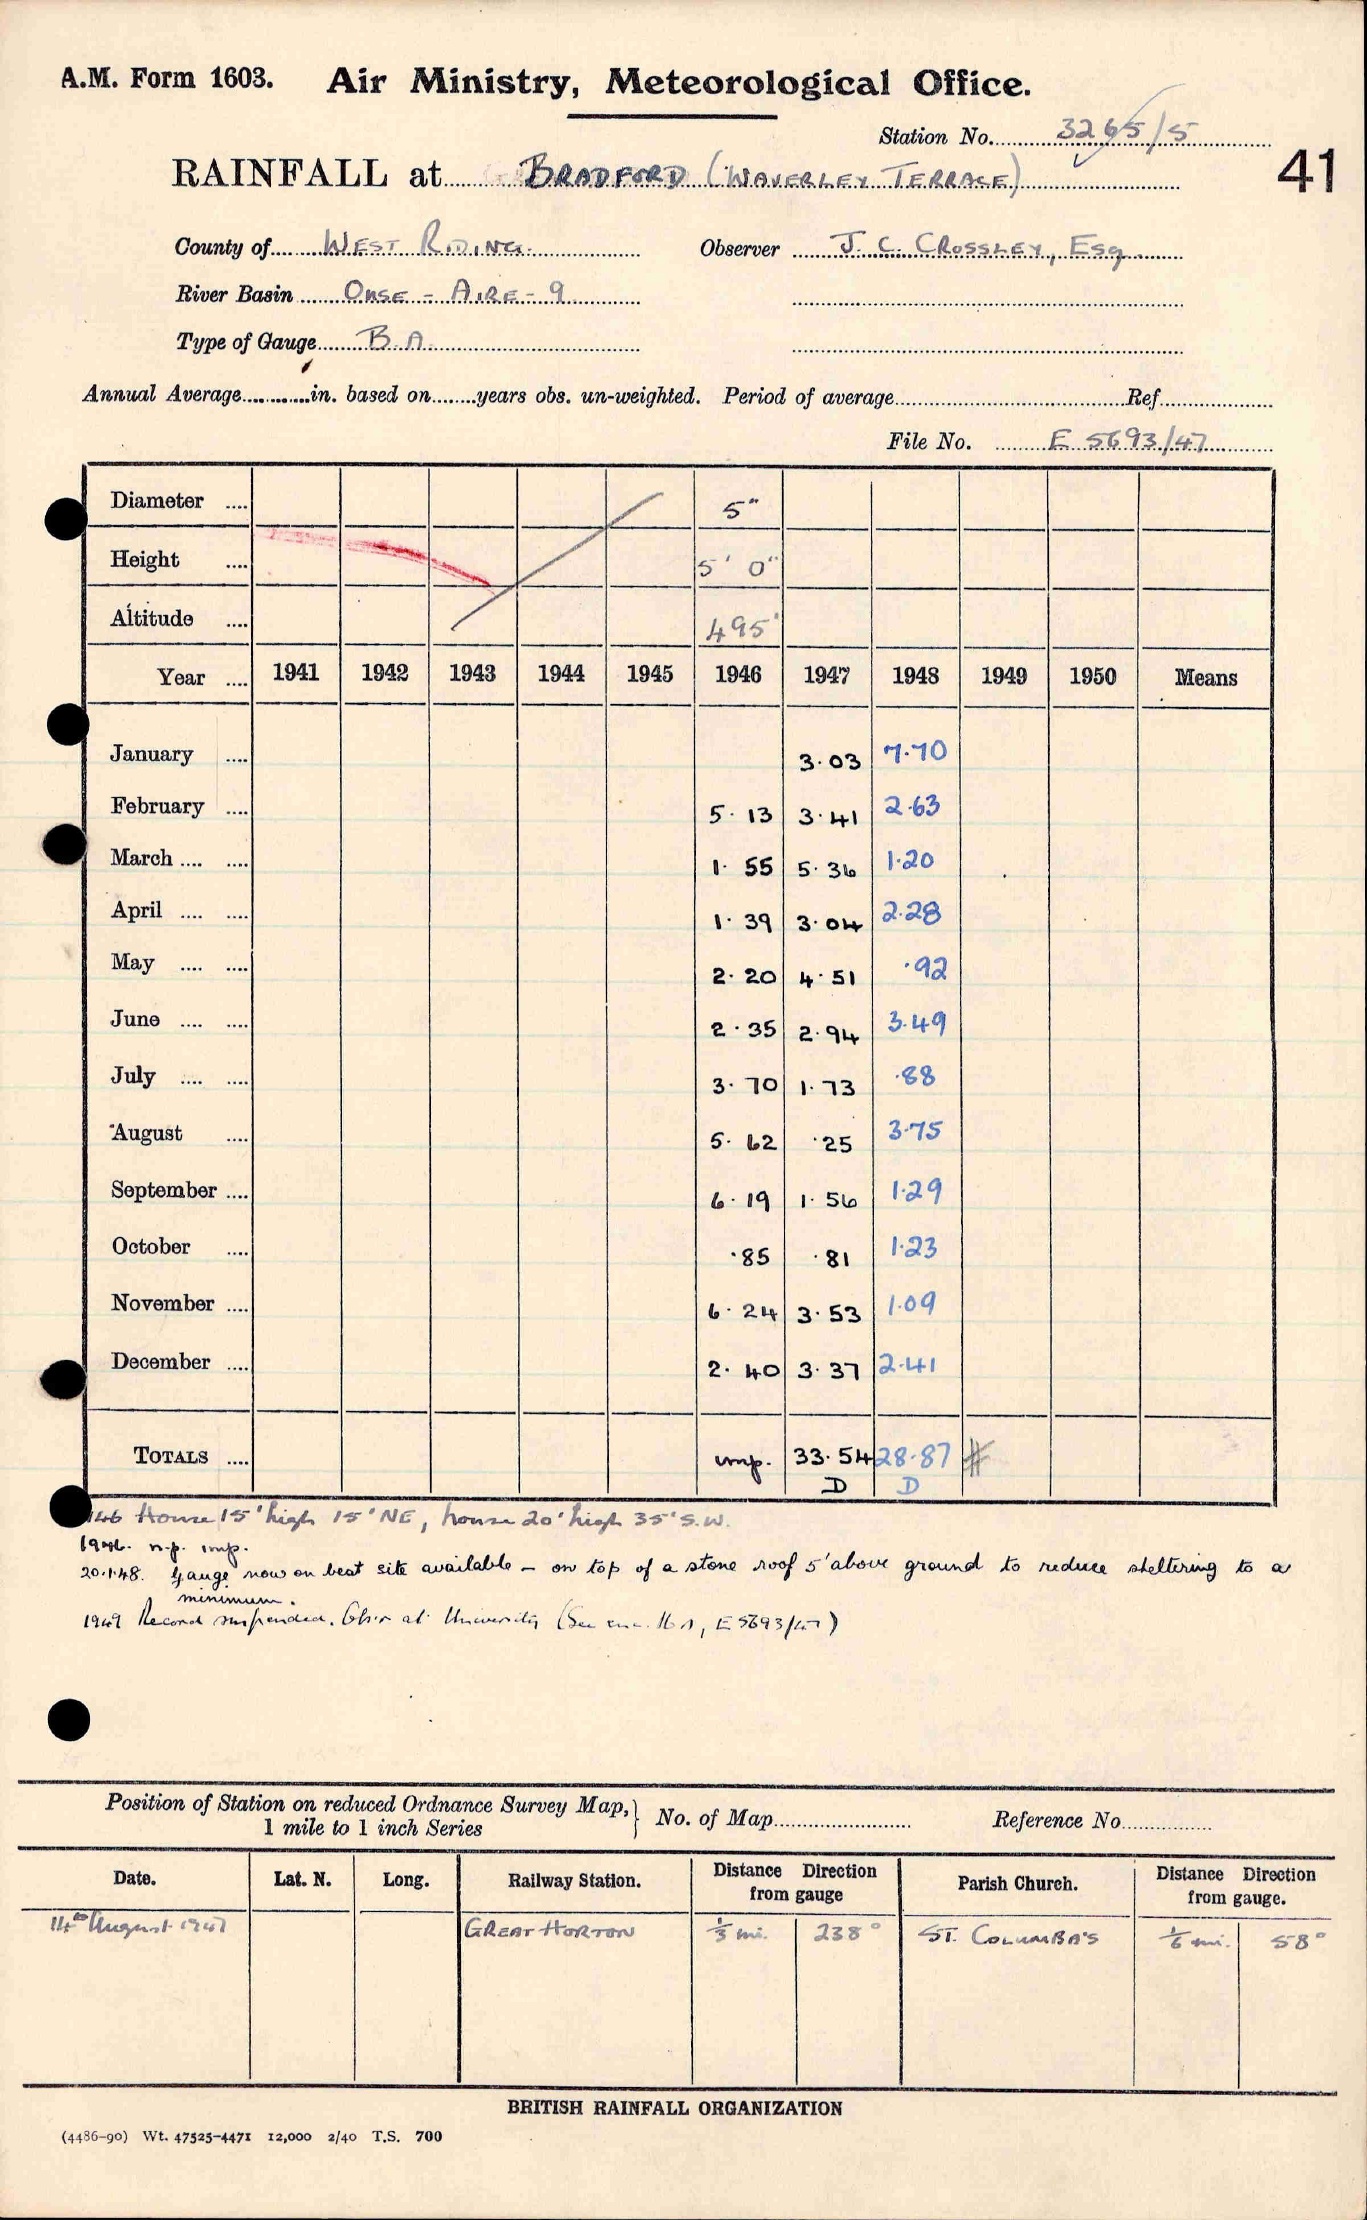 A.M. Form 1603. Air Ministry, Meteorological Office.
Station No. 3265/5
41
RAINFALL at BRADFORD (WAVERLEY TERRACE)
County of WEST RIDING. Observer J. C. CROSSLEY, Esq.
River Basin OUSE - AIRE - 9
Type of Gauge B.A.
Annual Average in. based on years obs. un-weighted. Period of average Ref
File No. E 5693/47
Diameter 5"
Height 5' 0"
Altitude 495'
Year 1941 1942 1943 1944 1945 1946 1947 1948 1949 1950 Means
January 3.03 7.70
February 5.13 3.41 2.63
March 1.55 5.36 1.20
April 1.39 3.04 2.28
May 2.20 4.51 .92
June 2.35 2.94 3.49
July 3.70 1.73 .88
August 5.62 .25 3.75
September 6.19 1.56 1.29
October .85 .81 1.23
November 6.24 3.53 1.09
December 2.40 3.37 2.41
TOTALS imp. 33.54 28.87 #
D D
146 House 15' high 15' NE, house 20' high 35' S.W.
1946. n.p. imp.
20.1.48. Gauge now on best site available – on top of a stone roof 5' above ground to reduce sheltering to a
minimum.
1949 Record suspended. Obsr at University (See enc. 16A, E 5693/47)
Position of Station on reduced Ordnance Survey Map, } No. of Map Reference No
1 mile to 1 inch Series
Date. Lat. N. Long. Railway Station. Distance Direction from gauge Parish Church. Distance Direction from gauge.
14th August 1947 GREAT HORTON 1/3 mi. 238° ST. COLUMBA'S 1/6 mi. 58°
BRITISH RAINFALL ORGANIZATION
(4486-90) Wt. 47525-4471 12,000 2/40 T.S. 700